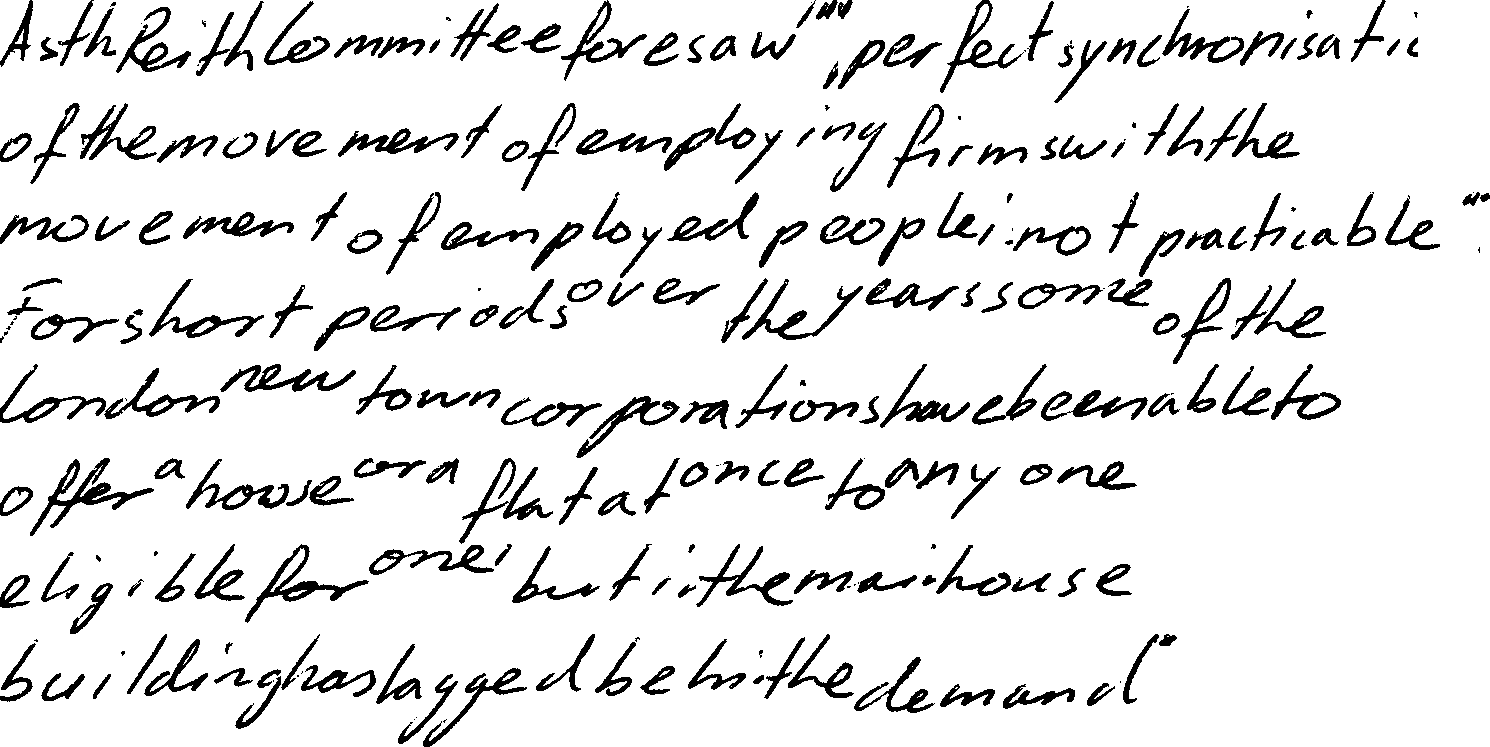 As th Reith Committee foresaw "" , perfect synchronisatic
of the movement of employing firms with the
movement of employed people i not practicable " .
For short periods over the years some of the
London new town corporations have been able to
offer a house or a flat at once to any one
eligible for one , but i the mai house
building has lagged behi the demand "